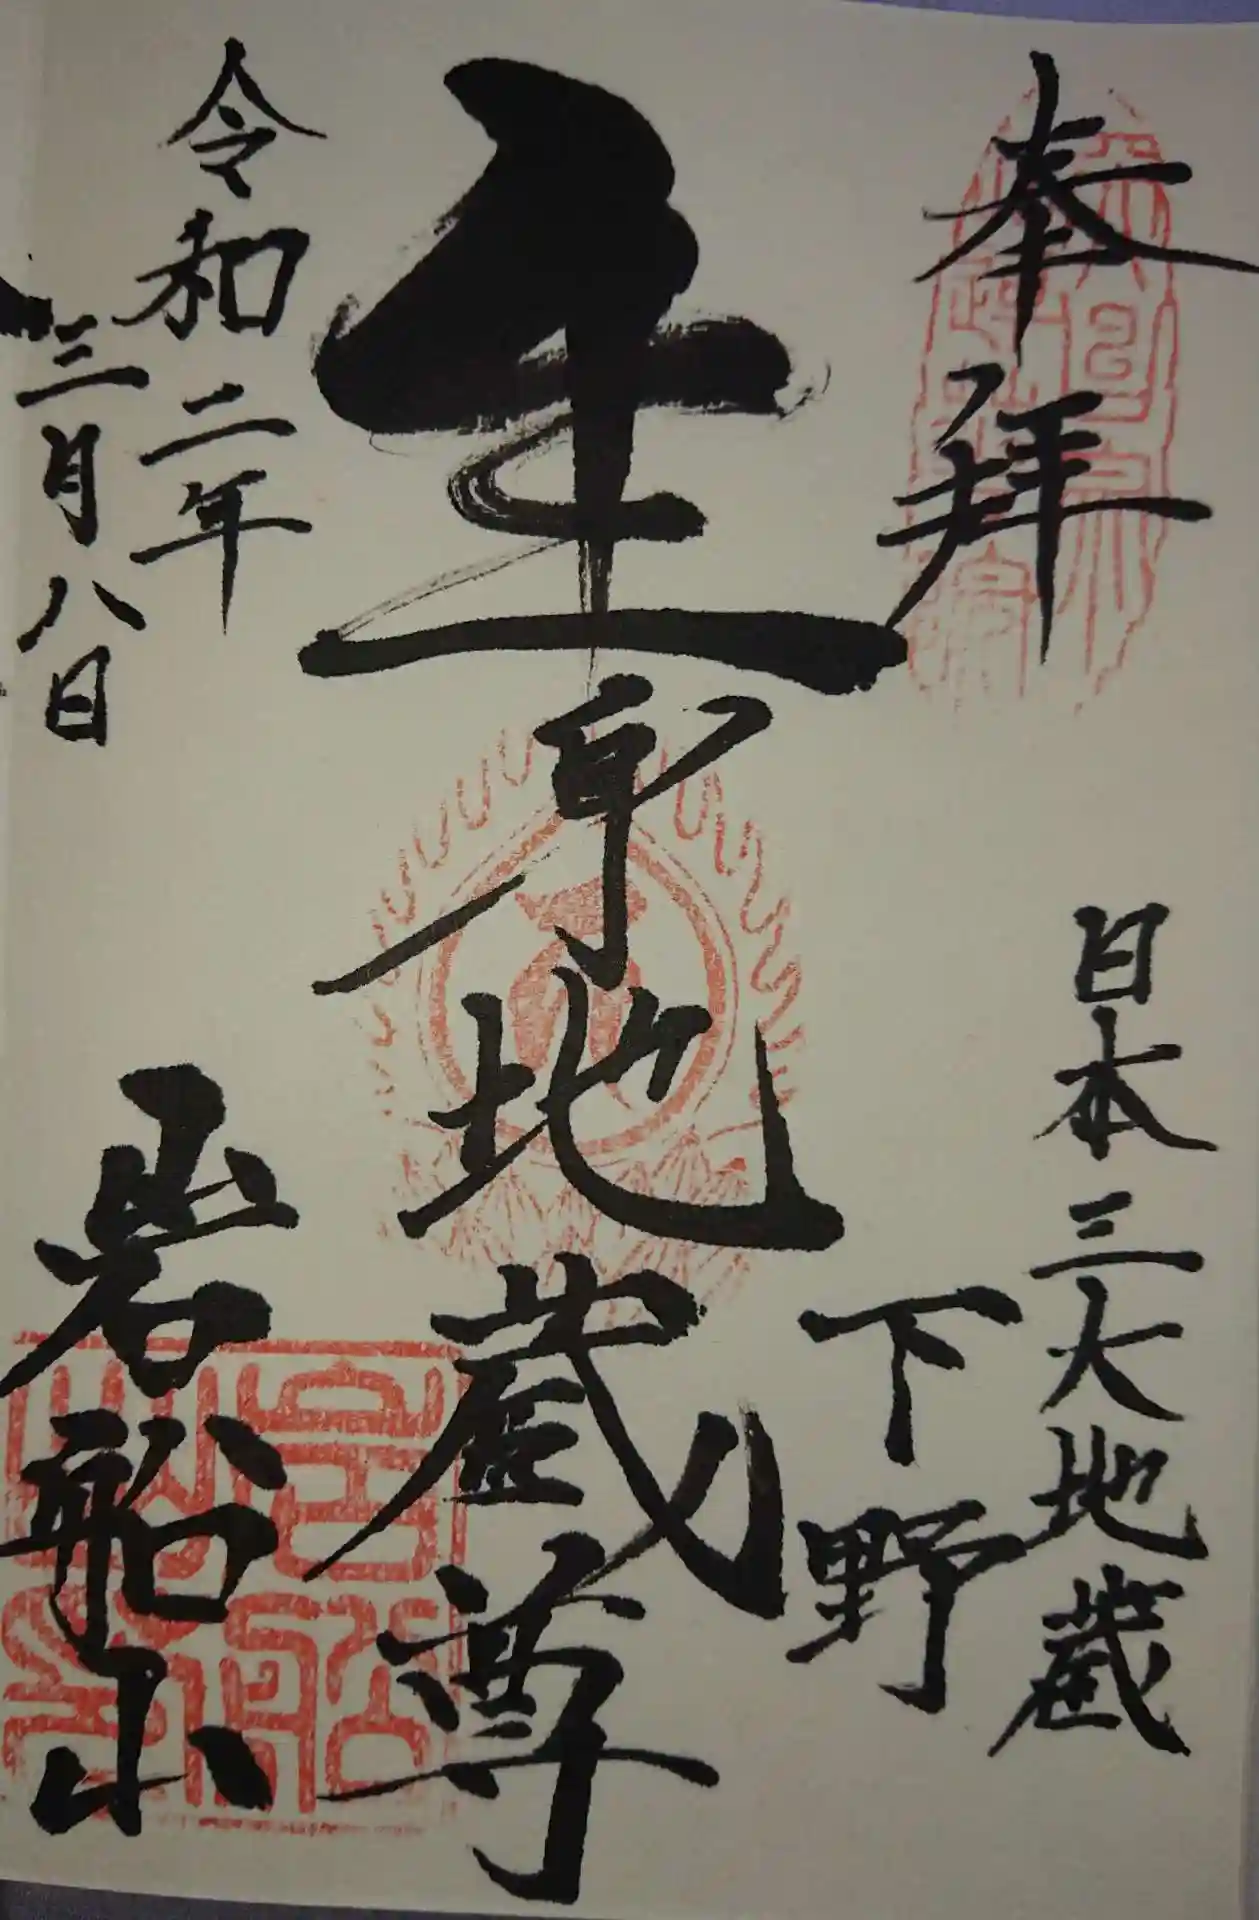 奉拝
日本三大地蔵
下野
生身地蔵尊
令和二年
三月八日
岩船山